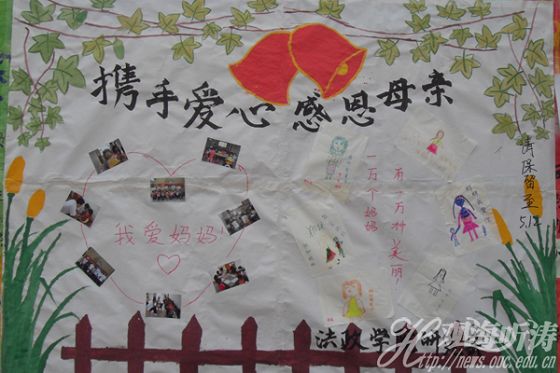 携手爱心 感恩母亲
请保留至
5.12
我爱妈妈!
有一万种美丽
一万个妈妈
法政学院
观海听涛
http://news.ouc.edu.cn